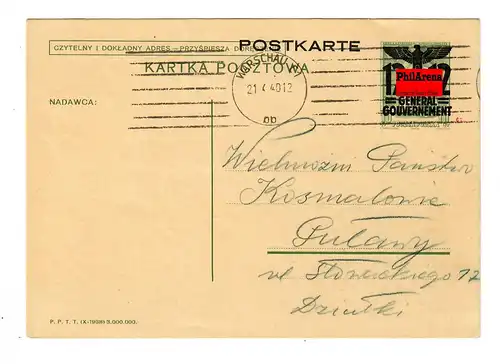 CZYTELNY I DOKŁADNY ADRES — PRZYŚPIESZA
POSTKARTE
KARTKA POCZTOWA
WARSCHAU
21.4.40 12
bb
12
PhilArena
GENERAL
GOUVERNEMENT
NADAWCA:
Wielmożni Państwo
Kosmalowie
Puławy
ul Słowackiego 72
Działki
P. P. T. T. (X-1938) 3.000.000.